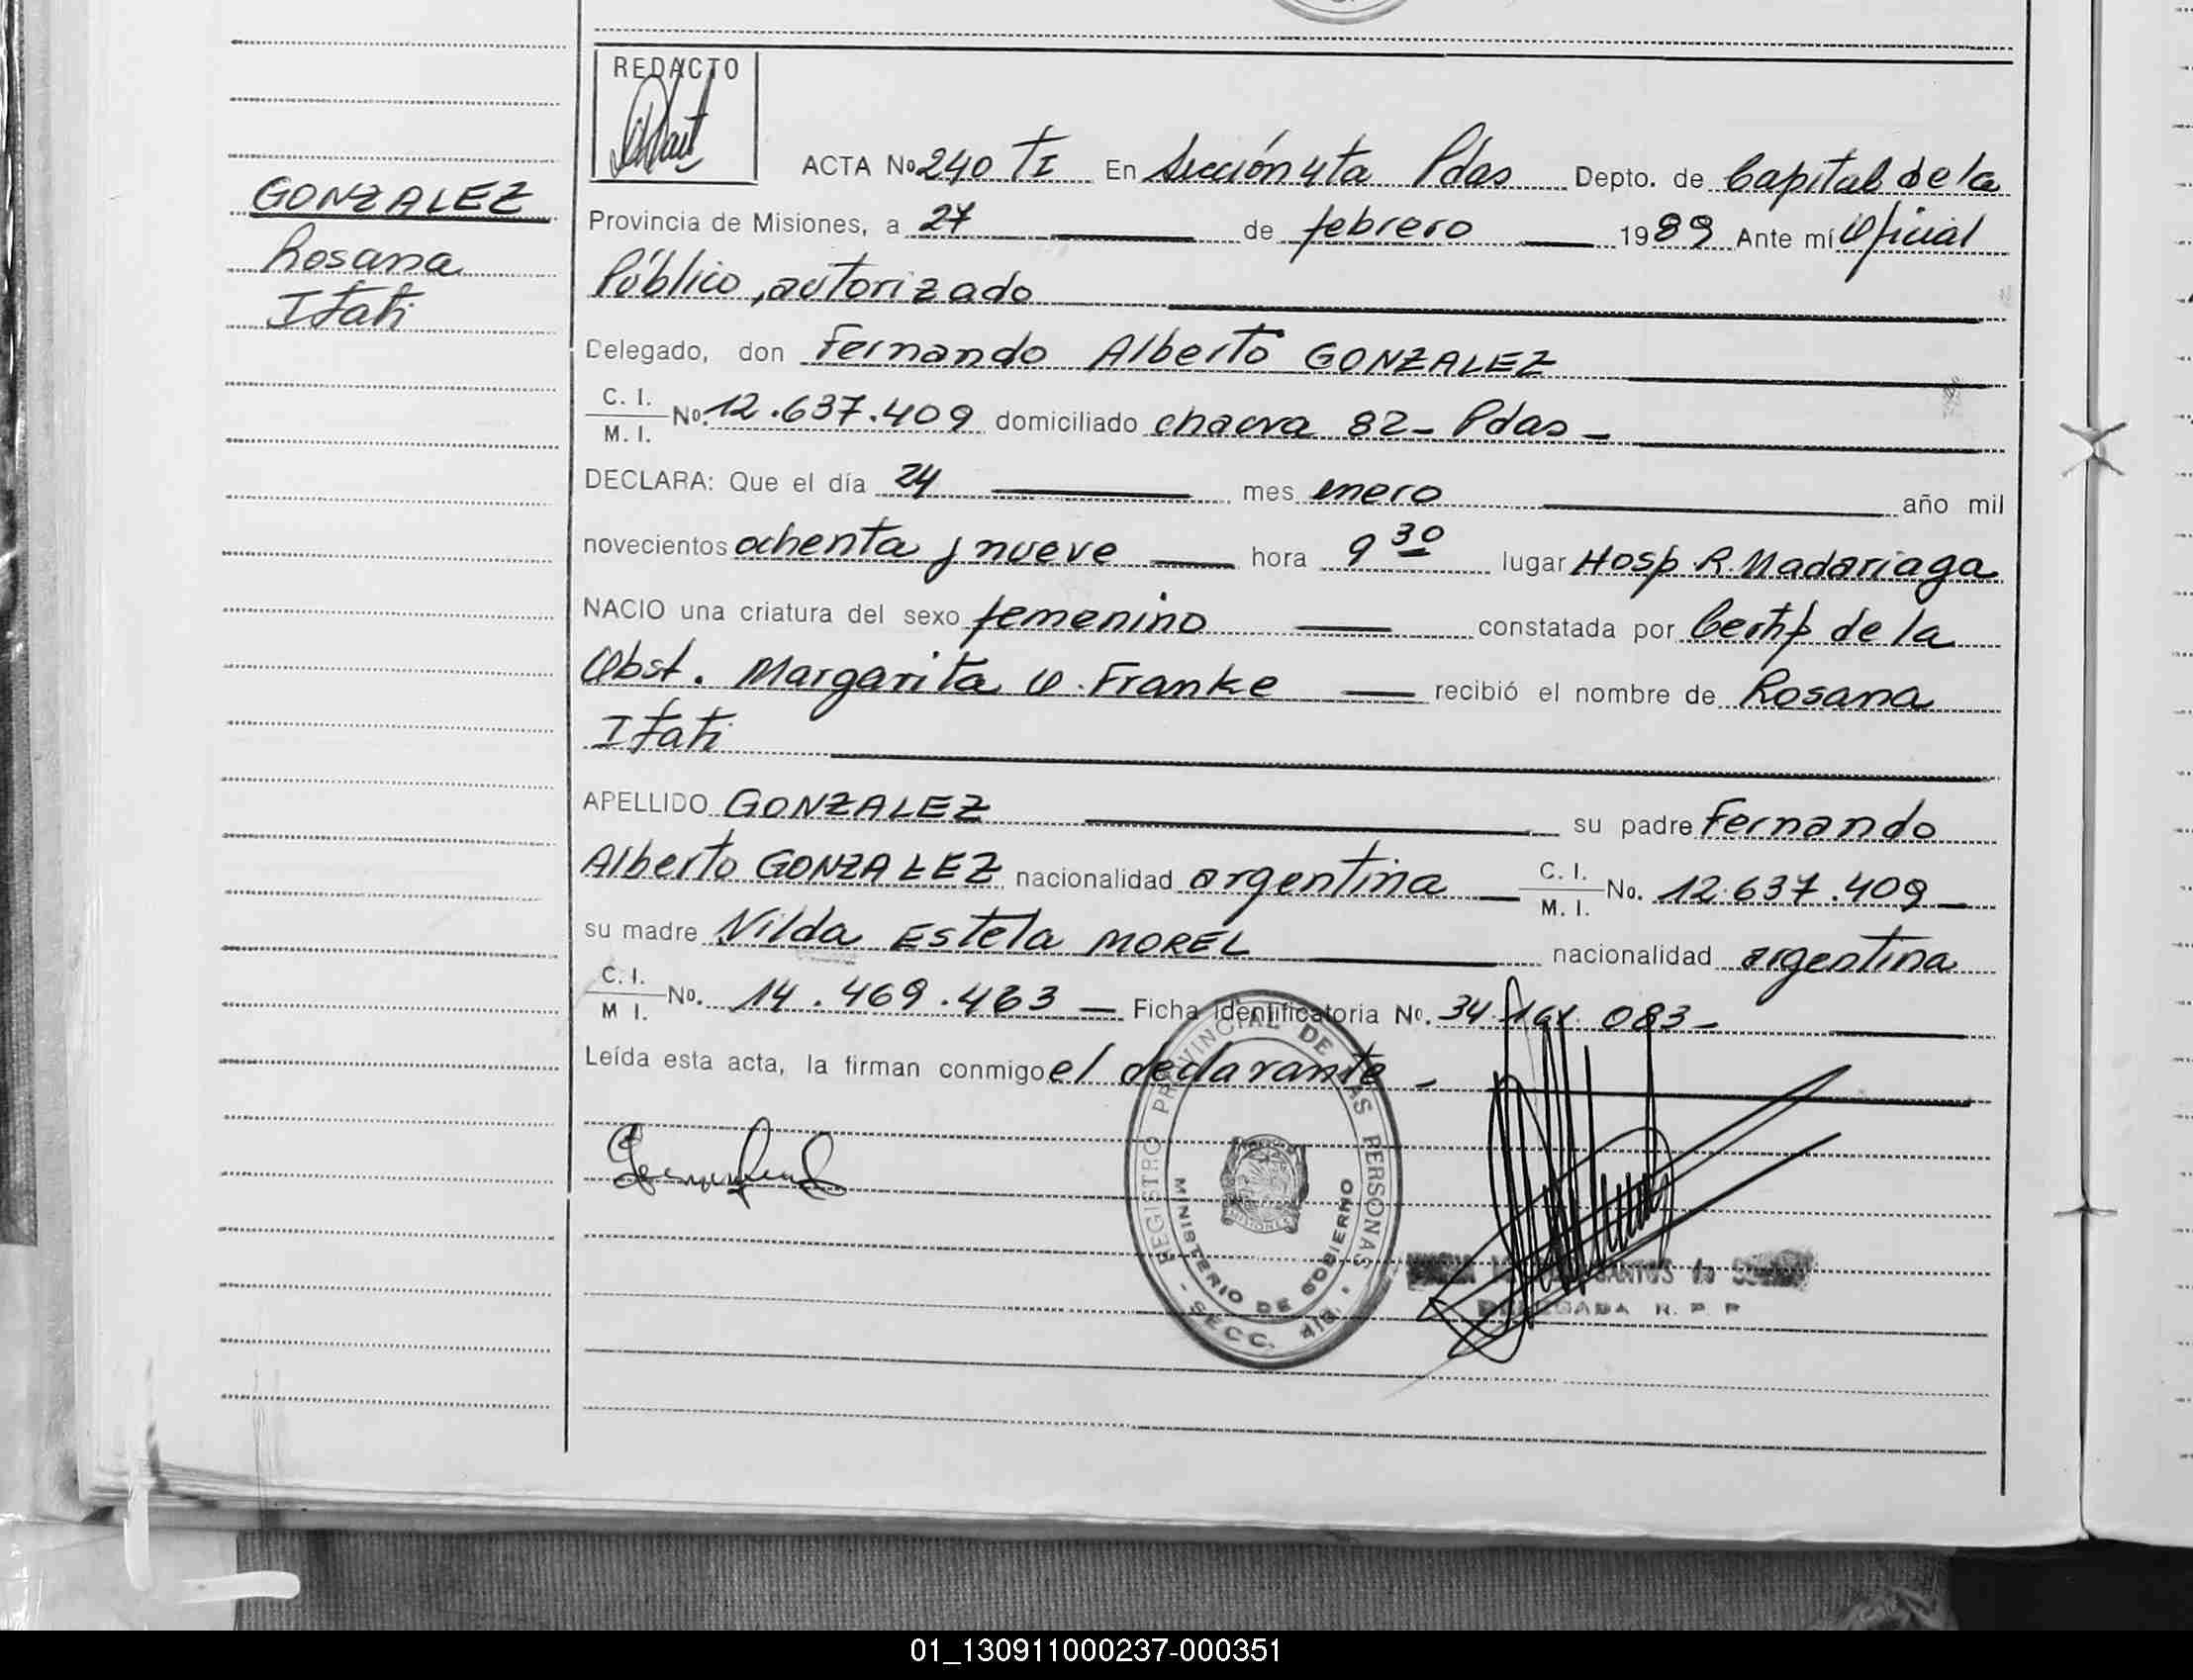 REDACTO
ACTA No 240 TI En Sección 4ta Pdas Depto. de Capital de la
GONZALEZ
Rosana
Itati
Provincia de Misiones, a 27 de febrero 1989 Ante mí Oficial
Público, autorizado
Delegado, don Fernando Alberto GONZALEZ
C. I.
M. I. No. 12.637.409 domiciliado chacra 82 - Pdas -
DECLARA: Que el día 24 mes enero año mil
novecientos ochenta y nueve hora 9 30 lugar Hosp R. Madariaga
NACIO una criatura del sexo femenino constatada por Certif de la
Obst. Margarita O. Franke recibió el nombre de Rosana
Itati
APELLIDO GONZALEZ su padre Fernando
Alberto GONZALEZ nacionalidad argentina C. I. M. I. No. 12.637.409
su madre Nilda Estela MOREL nacionalidad argentina
C. I.
M I. No. 14.469.463 Ficha Identificatoria No. 34 083 -
Leída esta acta, la firman conmigo el declarante -
REGISTRO PROVINCIAL DE LAS PERSONAS
MINISTERIO DE GOBIERNO
MISIONES
- SECC. 4ta. -
SANTOS de
DELEGADA R. P. P
01_130911000237-000351